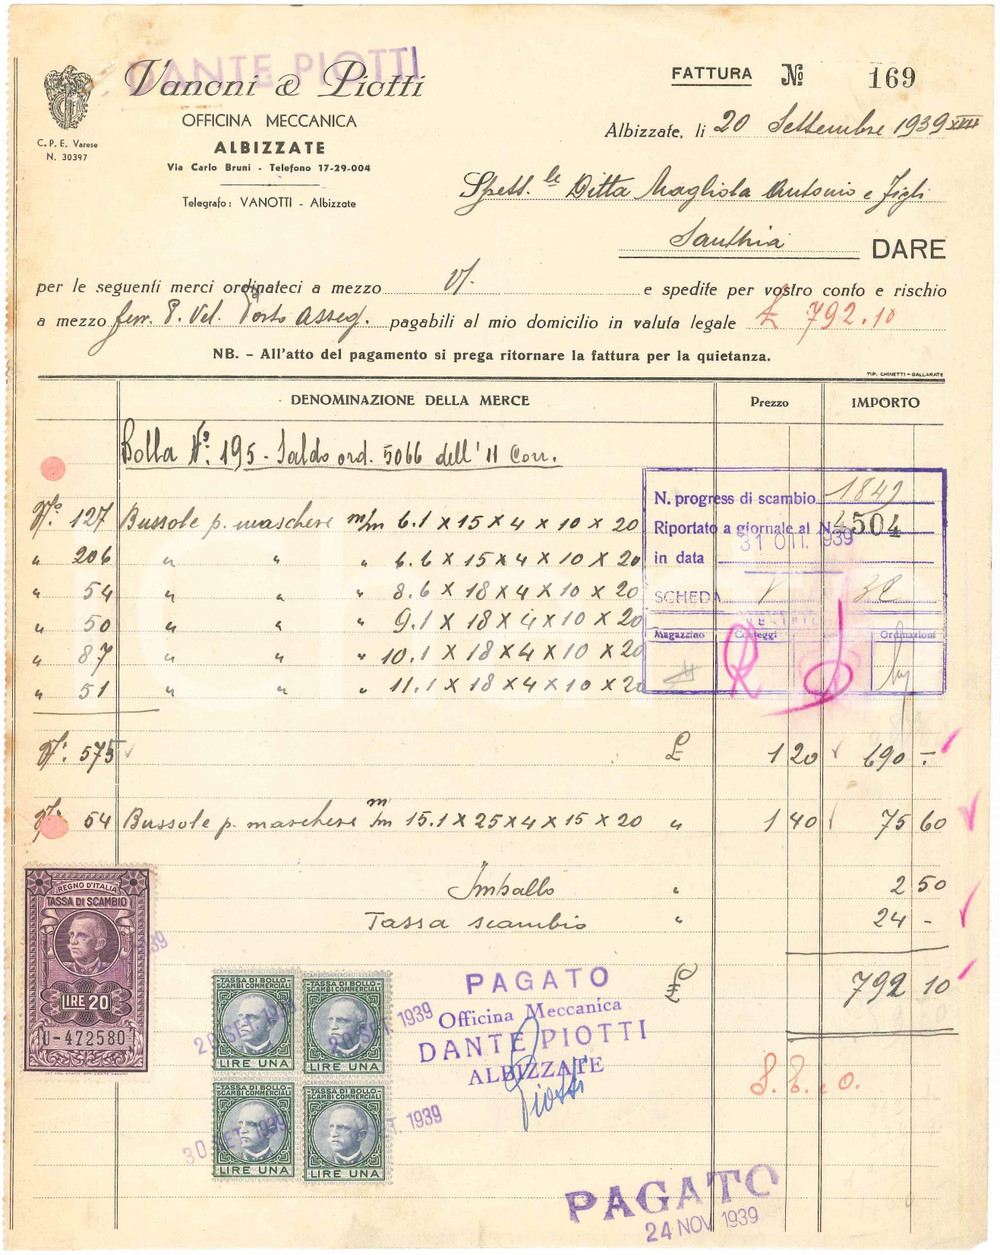 Vanoni & Piotti
DANTE PIOTTI
OFFICINA MECCANICA
ALBIZZATE
Via Carlo Bruni - Telefono 17-29-004
Telegrafo: VANOTTI - Albizzate
C.P.E. Varese
N. 30397
FATTURA № 169
Albizzate, li 20 Settembre 1939 XVII
Spett.le Ditta Magliola Antonio e Figli
Santhia DARE
per le seguenti merci ordinateci a mezzo V/. e spedite per vostro conto e rischio
a mezzo ferr. P. Vel. Porto Asseg. pagabili al mio domicilio in valuta legale £ 792.10
NB. - All'atto del pagamento si prega ritornare la fattura per la quietanza.
TIP. CHINETTI - GALLARATE
DENOMINAZIONE DELLA MERCE Prezzo IMPORTO
Bolla N°. 195 - Saldo ord. 5066 dell'11 Corr.
N° 127 Bussole p. maschere m/m 6.1 X 15 X 4 X 10 X 20
" 206 " " " 6.6 X 15 X 4 X 10 X 20
" 54 " " " 8.6 X 18 X 4 X 10 X 20
" 50 " " " 9.1 X 18 X 4 X 10 X 20
" 87 " " " 10.1 X 18 X 4 X 10 X 20
" 51 " " " 11.1 X 18 X 4 X 10 X 20
N. progress di scambio 1849
Riportato a giornale al N. 4504
in data 31 OTT. 1939
SCHEDA
Magazzino Conteggi Ordinazioni
N°. 575 £ 1 20 690 -
N°. 54 Bussole p. maschere m/m 15.1 X 25 X 4 X 15 X 20 " 1 40 75 60
Imballo " 2 50
Tassa scambio " 24 -
£ 792 10
S. E. e O.
REGNO D'ITALIA
TASSA DI SCAMBIO
LIRE 20
U-472580
TASSA DI BOLLO
SCAMBI COMMERCIALI
LIRE UNA
TASSA DI BOLLO
SCAMBI COMMERCIALI
LIRE UNA
TASSA DI BOLLO
SCAMBI COMMERCIALI
LIRE UNA
TASSA DI BOLLO
SCAMBI COMMERCIALI
LIRE UNA
30 SET. 1939
PAGATO
Officina Meccanica
DANTE PIOTTI
ALBIZZATE
Piotti
PAGATO
24 NOV 1939